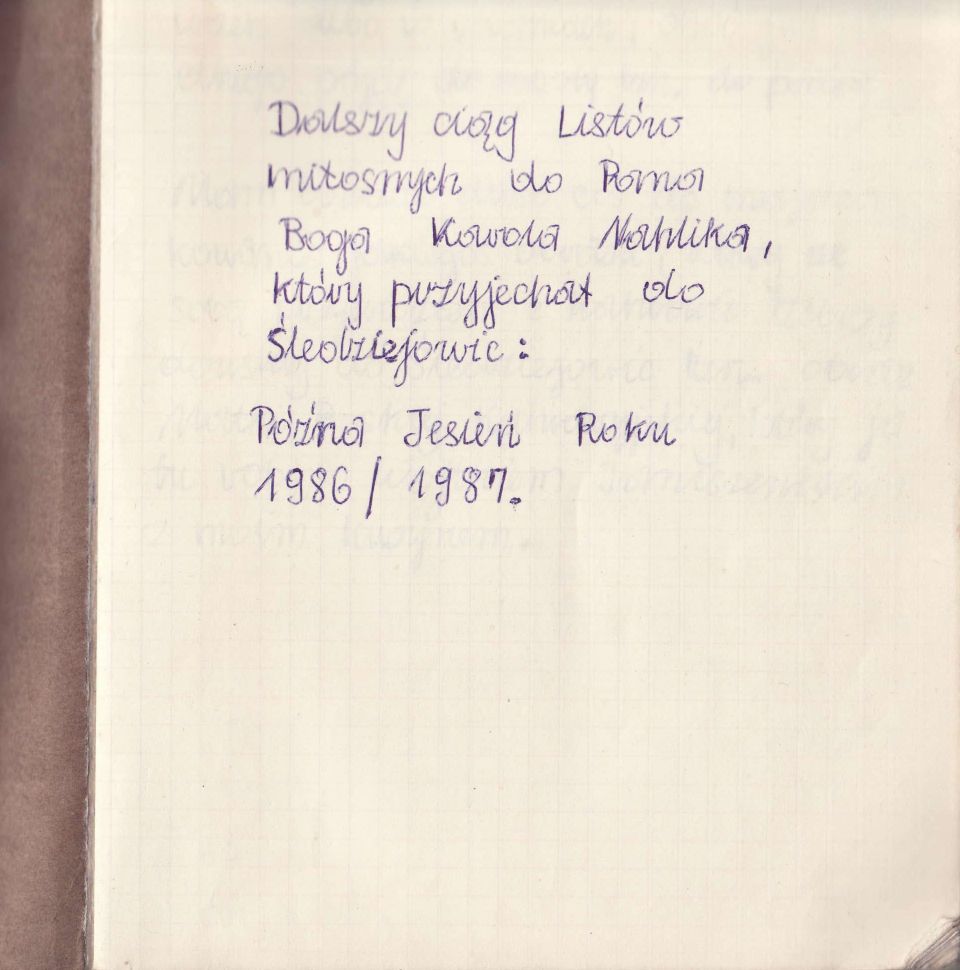 Dalszy ciąg Listów
miłosnych do Pana
Boga Karola Nahlika,
który przyjechał do
Śledziejowic:
Późna Jesień Roku
1986 / 1987.